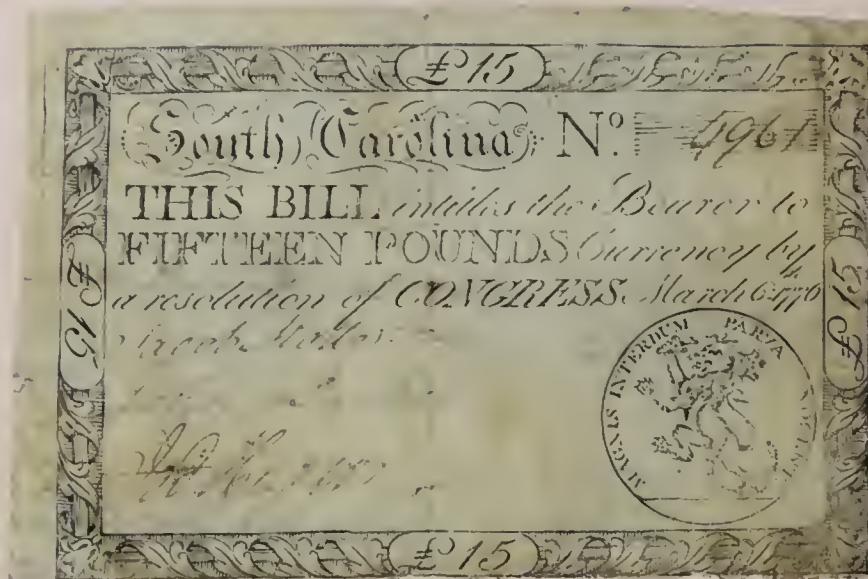 £15
South Carolina Nº. 4961
THIS BILL intitles the Bearer to
FIFTEEN POUNDS Currency by
a resolution of CONGRESS. March 6th 1776
£15
£15
MAGNIS INTERDUM PARVA NOCENT
£15